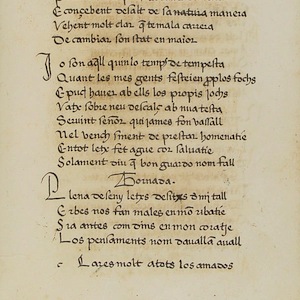 E conçebent desalt de sa natura manera
Vehent molt clar q̃ temala carrera
De cambiar son stat en maior
Jo son aq̃ll quin lo temps de tempesta
Quant les mes gents festeien prop los fochs
E puch hauer ab ells los propis jochs
Vatx sobre neu descalç ab nua testa
Seruint senõr qui james fon vassall
Nel vench sment de prestar homenatie
En tot letx fet ague cor saluatie
Solament diu q̃ bon guardo nom fall
Tornada.
Plena de seny letxs desitxs d mi tall
Erbes nos fan males en mõ ribatie
Sia antes com dins en mon coratje
Los pensaments nom dauallen auall
Lares molt a tots los amados